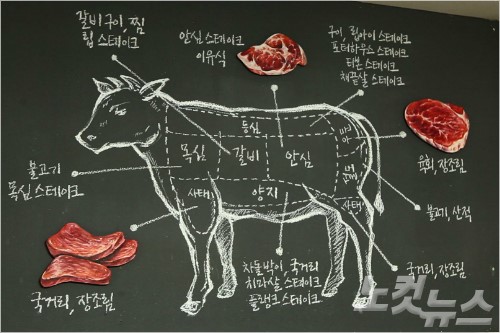 갈비구이, 찜
립 스테이크
안심 스테이크
이유식
구이, 립아이 스테이크
포터하우스 스테이크
티본 스테이크
채끝살 스테이크
등심
목심
갈비
안심
사태
양지
사태
불고기
목심 스테이크
육회, 장조림
불고기, 산적
국거리, 장조림
차돌박이, 국거리
치마살 스테이크
플랭크 스테이크
국거리, 장조림
노컷뉴스